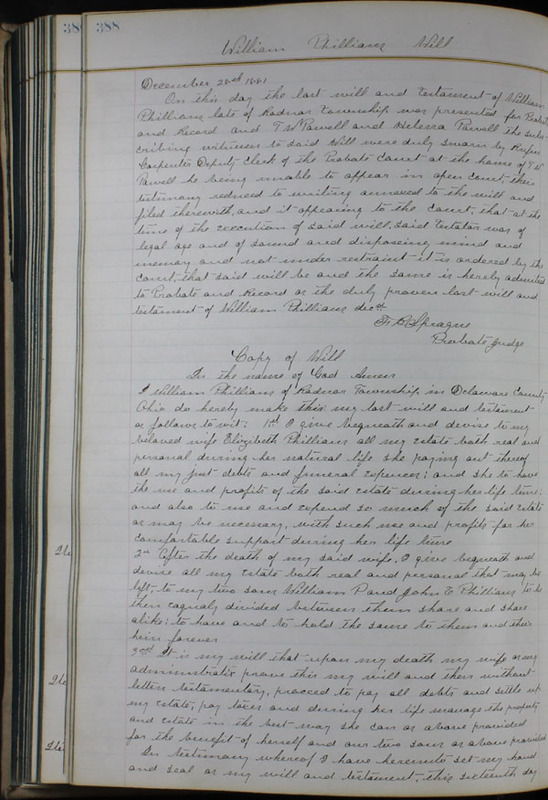 38 388
William Phillians Will
December 28th 1881
On this day the last will and testament of William
Phillians late of Radnor Township was presented for Probate
and Record and T W Powell and Helena Powell the subs
cribing witnesses to said Will were duly sworn by Rufus
Carpenter Deputy Clerk of the Probate Court at the home of T W
Powell he being unable to appear in open court, their
testimony reduced to writing annexed to the will and
filed therewith, and it appearing to the Court, that at the
time of the execution of said will, said testator was of
legal age and of sound and disposing mind and
memory and not under restraint it is ordered by the
Court, that said will be and the same is hereby admitted
to Probate and Record as the duly proven last will and
testament of William Phillians decd.
F B Sprague
Probate Judge
Copy of Will
In the name of God Amen
I William Phillians of Radnor Township in Delaware County
Ohio do hereby make this my last will and testament
as follows to wit: 1st I give bequeath and devise to my
beloved wife Elizibeth Phillians all my estate both real and
personal during her natural life she paying out thereof
all my just debts and funeral expences; and she to have
the use and profits of the said estate during her life time:
and also to use and expend so much of the said estate
as may be necessary, with such use and profits for her
comfortable support during her life time
2nd After the death of my said wife, I give bequeath and
devise all my estate both real and personal that may be
left, to my two sons William P and John E Phillians to be
then equaly divided between them share and share
alike: to have and to hold the same to them and their
heirs forever
3rd It is my will that upon my death my wife as my
administratrix prove this my will and then without
letters testamentary, proceed to pay all debts and settle up
my estate, pay taxes and during her life manage the property
and estate in the best way she can as above provided
for the benefit of herself and our two sons as above provided
In testimony whereof I have hereunto set my hand
and seal as my will and testament, this sixteenth day